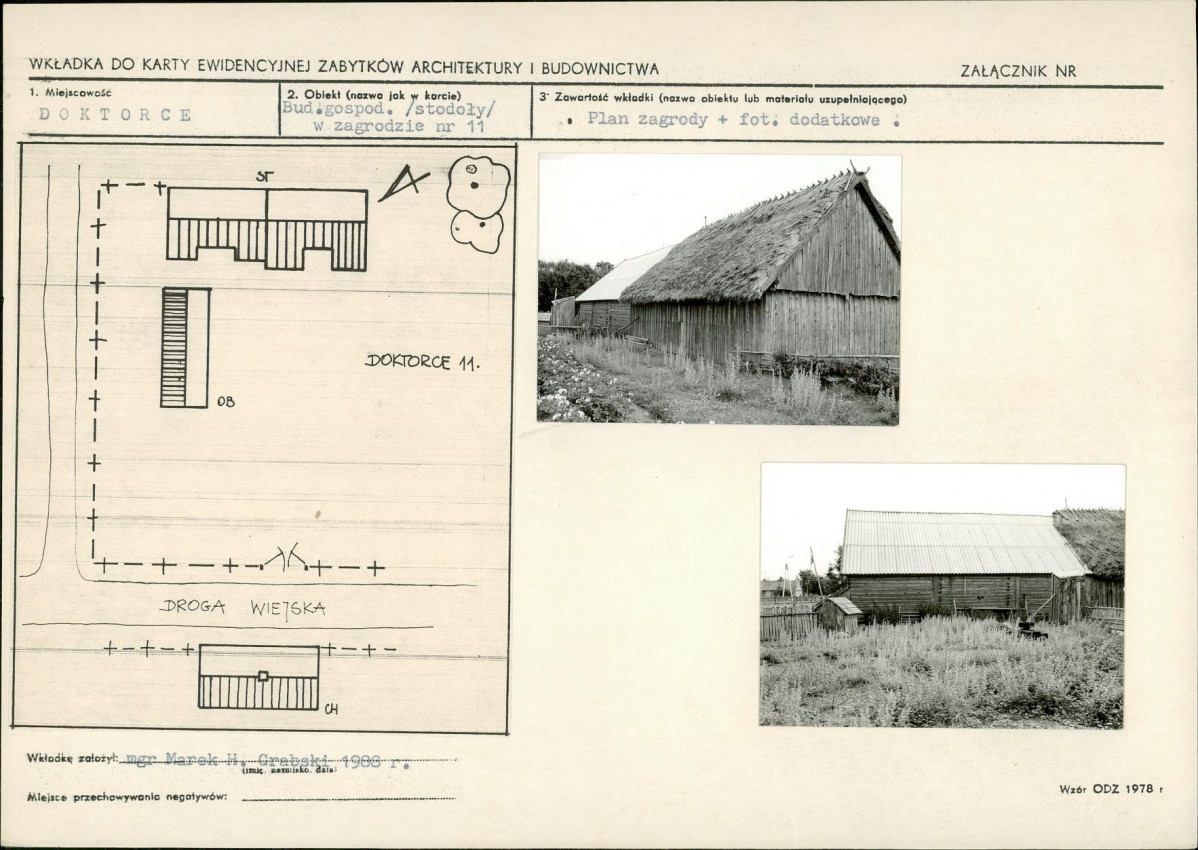 WKŁADKA DO KARTY EWIDENCYJNEJ ZABYTKÓW ARCHITEKTURY I BUDOWNICTWA
ZAŁĄCZNIK NR
1. Miejscowość
DOKTORCE
2. Obiekt (nazwa jak w karcie)
Bud.gospod. /stodoły/
w zagrodzie nr 11
3. Zawartość wkładki (nazwa obiektu lub materiału uzupełniającego)
. Plan zagrody + fot. dodatkowe .
ST
DOKTORCE 11.
OB
DROGA WIEJSKA
CH
Wkładkę założył: mgr Marek H. Grabski 1988 r.
(imię, nazwisko, data)
Miejsce przechowywania negatywów:
Wzór ODZ 1978 r